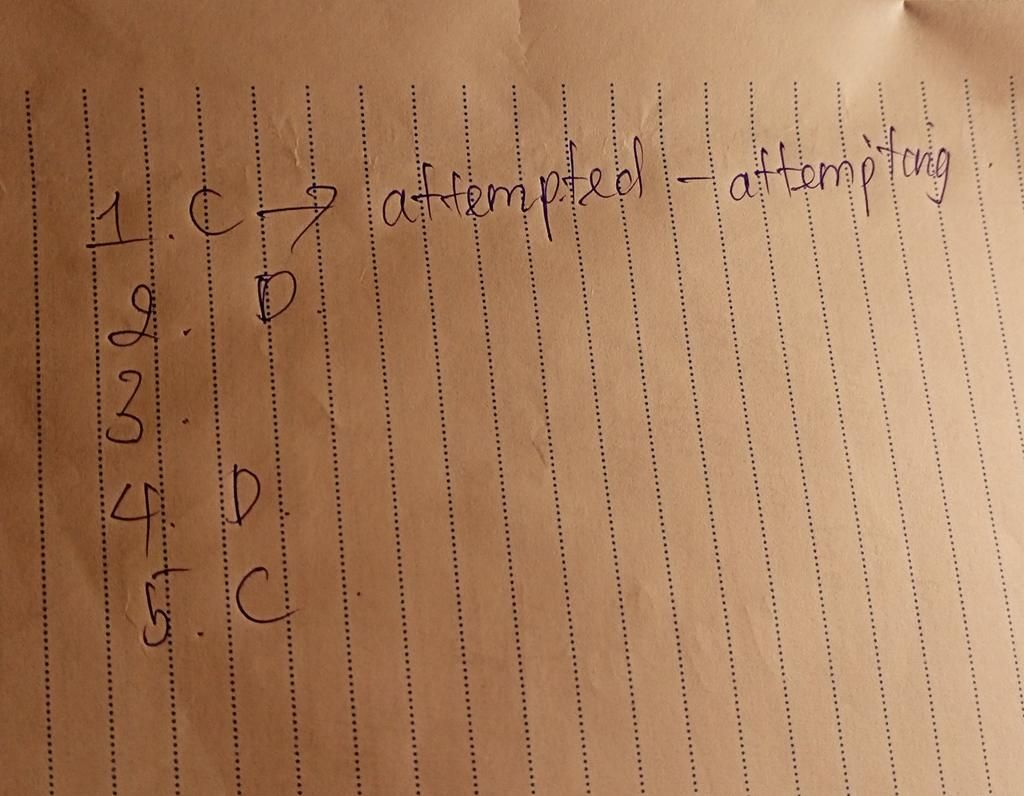 1. C → attempted - attempting.
2. D.
3.
4. D.
5. C.